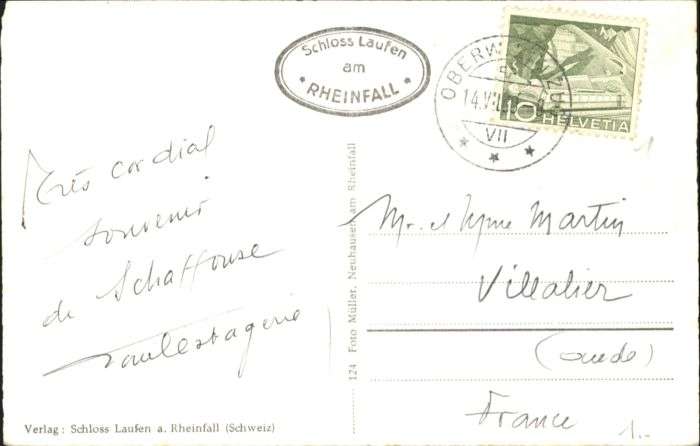 Schloss Laufen
am
RHEINFALL
14.VII
VII
10 HELVETIA
Très cordial
souvenir
de Schaffouse
Mr. et Mme Martin
Villalier
(Aude)
France
1.-
124 Foto Müller, Neuhausen am Rheinfall
Verlag: Schloss Laufen a. Rheinfall (Schweiz)